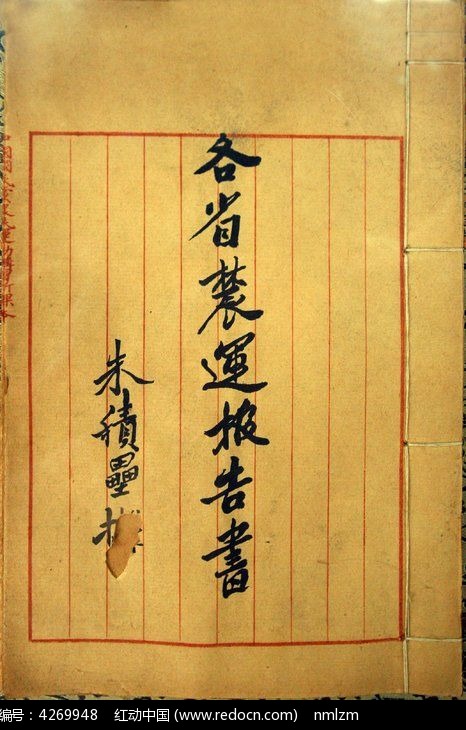 各省農運报告書
朱積壘
编号：4269948 红动中国 (www.redocn.com) nmlzm